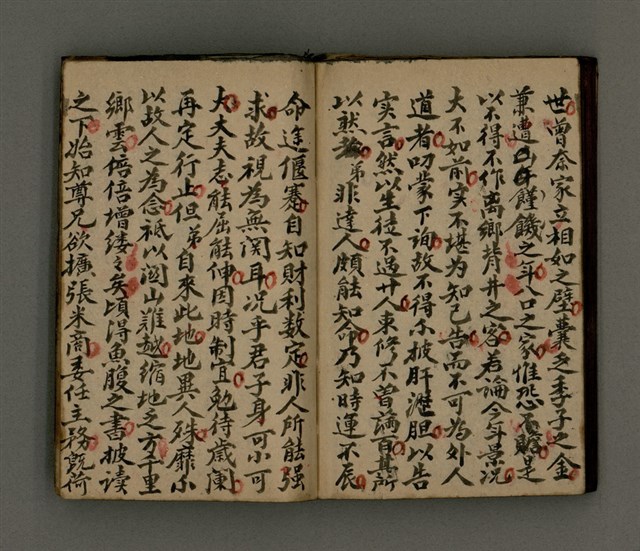 世曾奈家立相如之壁囊乏季子之金
兼遭凶年饉饑之年八口之家惟恐有賬是
以不得不作离鄉背井之客若論今年景况
大不如前实不堪为知己告而不可為外人
道者叨蒙下詢故不得不披肝瀝膽以告
实言然以生徒不過廿人束修不普論百其所
以然者弟非達人頗能知命乃知時運不辰
命途偃蹇自知財利数定非人所能强
求故視為無関耳况乎君子身可小可
大丈夫志能屈能伸因時制宜勉待歲闌
再定行止但弟自來此地地異人殊靡不
以故人之為念祗以関山難越縮地之方千里
鄉雲倍倍增缕々矣頃得魚腹之書披读
之下始知尊兄欲擴張米商委任主務既荷